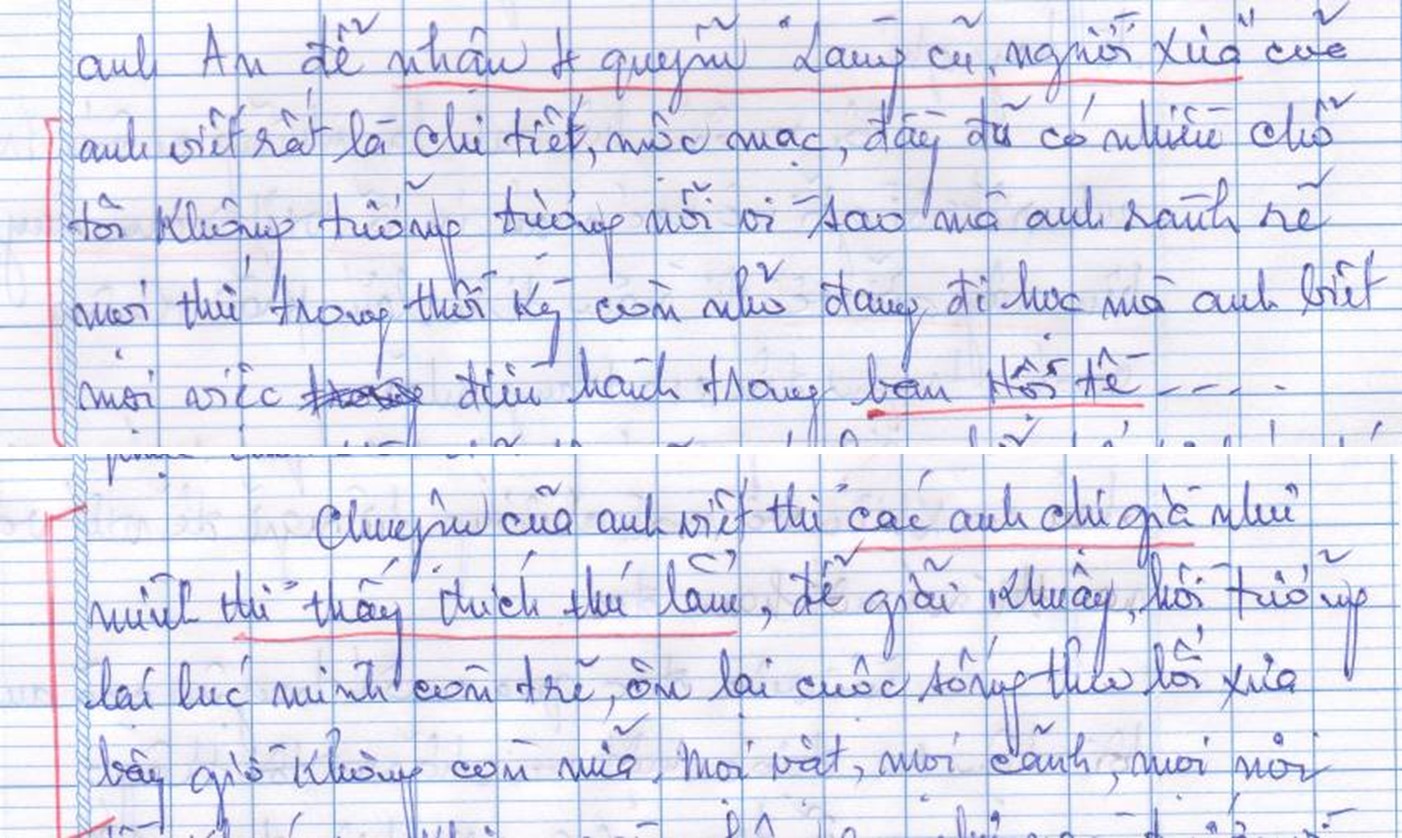 anh An đễ nhân 4 quyễn "Làng cũ, người xưa" cuẽ
anh viết rất là chi tiết, mộc mạc, đầy đũ có nhiều chỗ
tôi không tưỡng tượng nỗi vì sao mà anh rành rẽ
mọi thứ trong thời kỳ còn nhỏ đang đi học mà anh biết
mọi việc điều hành trong ban Hội tề ----
Chuyện cũa anh viết thì các anh chị già như
mình thì thấy thích thú lắm, đễ giãi khuây, hồi tưỡng
lại lúc mình còn trẽ, ôn lại cuộc sống theo lối xưa
bây giờ không còn nữa. Mọi vật, mọi cãnh, mọi nơi